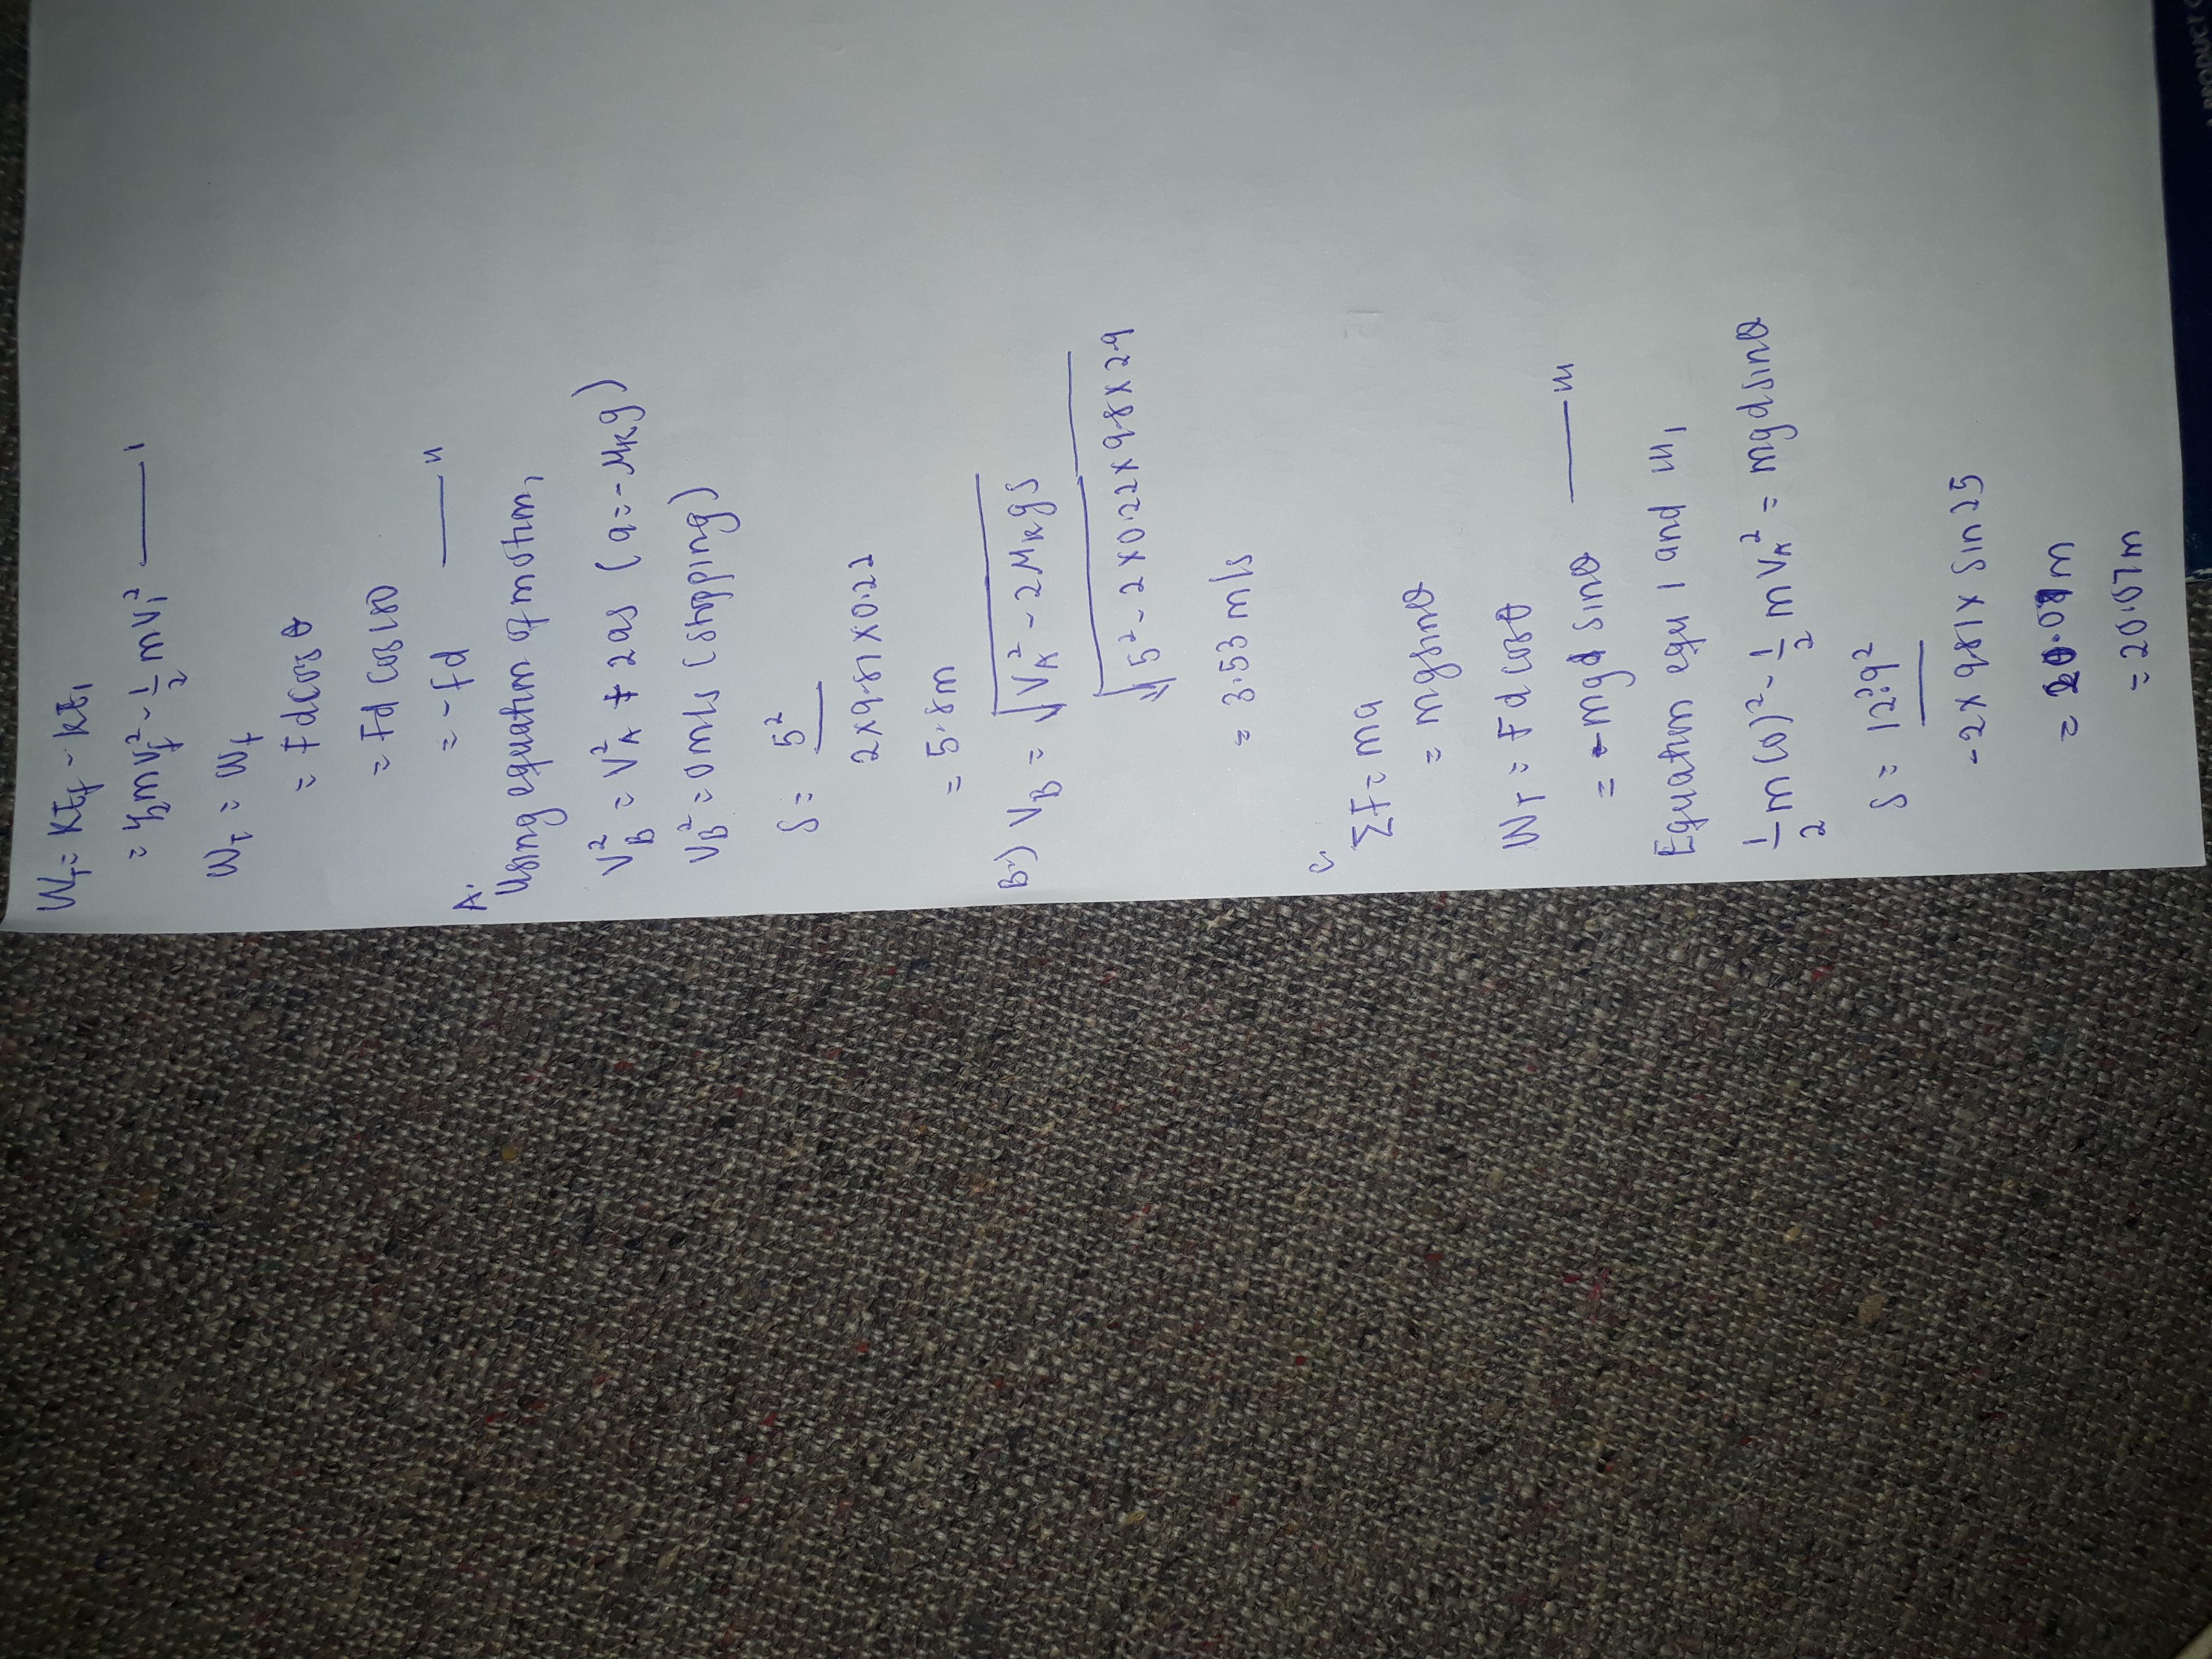 W_T = KE_f - KE_1
= ½mv_f² - ½mv_i² —— 1
W_T = W_f
= Fdcos θ
= Fd cos 180
= -fd —— 11
A.
Using equation of motion,
V_B² = V_A² + 2as (a = -μkg)
V_B² = 0m/s (stopping)
S = 5²
2×9.81×0.22
= 5.8m
B.) V_B = √V_A² - 2μkgs
√5² - 2×0.22×9.8×2.9
= 3.53 m/s
C.
ΣF = ma
= mgsinθ
W_T = Fd cosθ
= -mgd sinθ —— 111
Equation equ 1 and 111,
½m(0)² - ½mV_A² = mgdsinθ
S = 12.9²
-2×9.81×sin25
= 20.07m
A PRODUCT